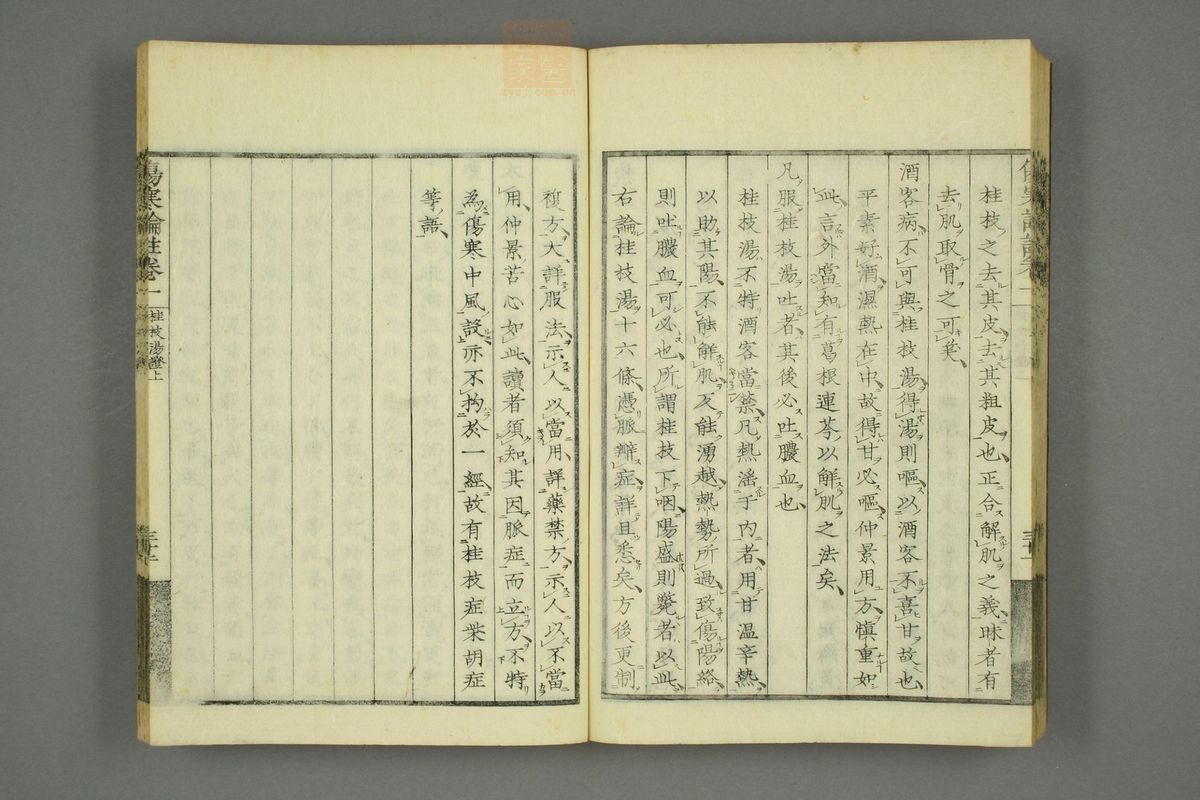 桂枝之去其皮去其粗皮也正合解肌之義昧者有
去肌取骨之可矣
酒客病不可與桂枝湯得湯則嘔以酒客不喜甘故也
平素好酒濕熱在中故得甘必嘔仲景用方慎重如
此言外當知有葛根連芩以解肌之法矣
凡服桂枝湯吐者其後必吐膿血也
桂枝湯不特酒客當禁凡熱滛于内者用甘温辛熱
以助其陽不能解肌反能湧越熱勢所過致傷陽絡
則吐膿血可必也所謂桂枝下咽陽盛則斃者以此
右論桂枝湯十六條憑脈辯症詳且悉矣方後更制
複方大詳服法示人以當用詳藥禁方示人以不當
用仲景苦心如此讀者須知其因脈症而立方不特
為傷寒中風設亦不拘於一經故有桂枝症柴胡症
等語
傷寒論註卷一
桂枝湯證上
三十二